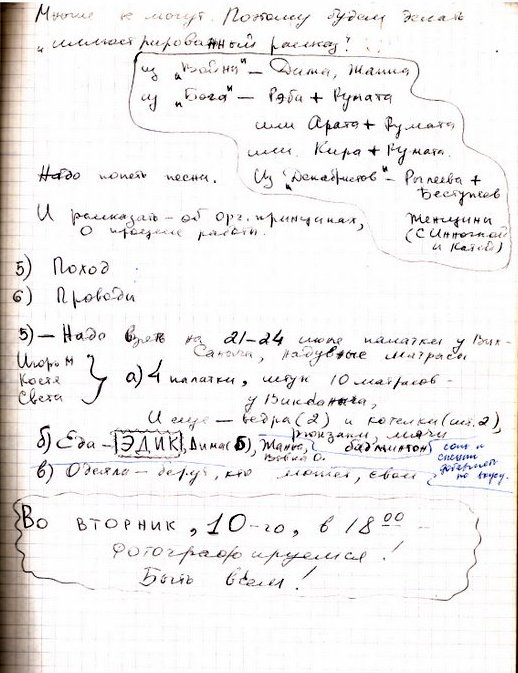 Многие не могут. Поэтому будем делать
"иллюстрированный рассказ".
из "Война" — Дима, Жанна
из "Бога" — Рэба + Румата
или Арата + Румата
или Кира + Румата.
Надо попеть песни. Из "Декабристов" — Рылеева + Бестужев
И рассказать — об орг. принципах, Женщины
О процессе работы. (с Инночкой и Катей)
5) Поход
6) Проводы
5) — Надо взять на 21–24 июля палатки у Вик-
Саныча, надувные матрасы
Игорь М
Костя
Света
а) 4 палатки, штук 10 матрасов -
у Виксаныча,
И еще — ведра (2) и котелки (шт. 2),
рюкзаки, мячи
б) Еда — ЭДИК, Дима (Б), Жанна, бадминтон
Вовка О.
соль и
специи
добавлять
по вкусу.
в) Одеяла — берут, кто может, свои
Во вторник, 10-го, в 18 00 -
фотографируемся!
Быть всем!